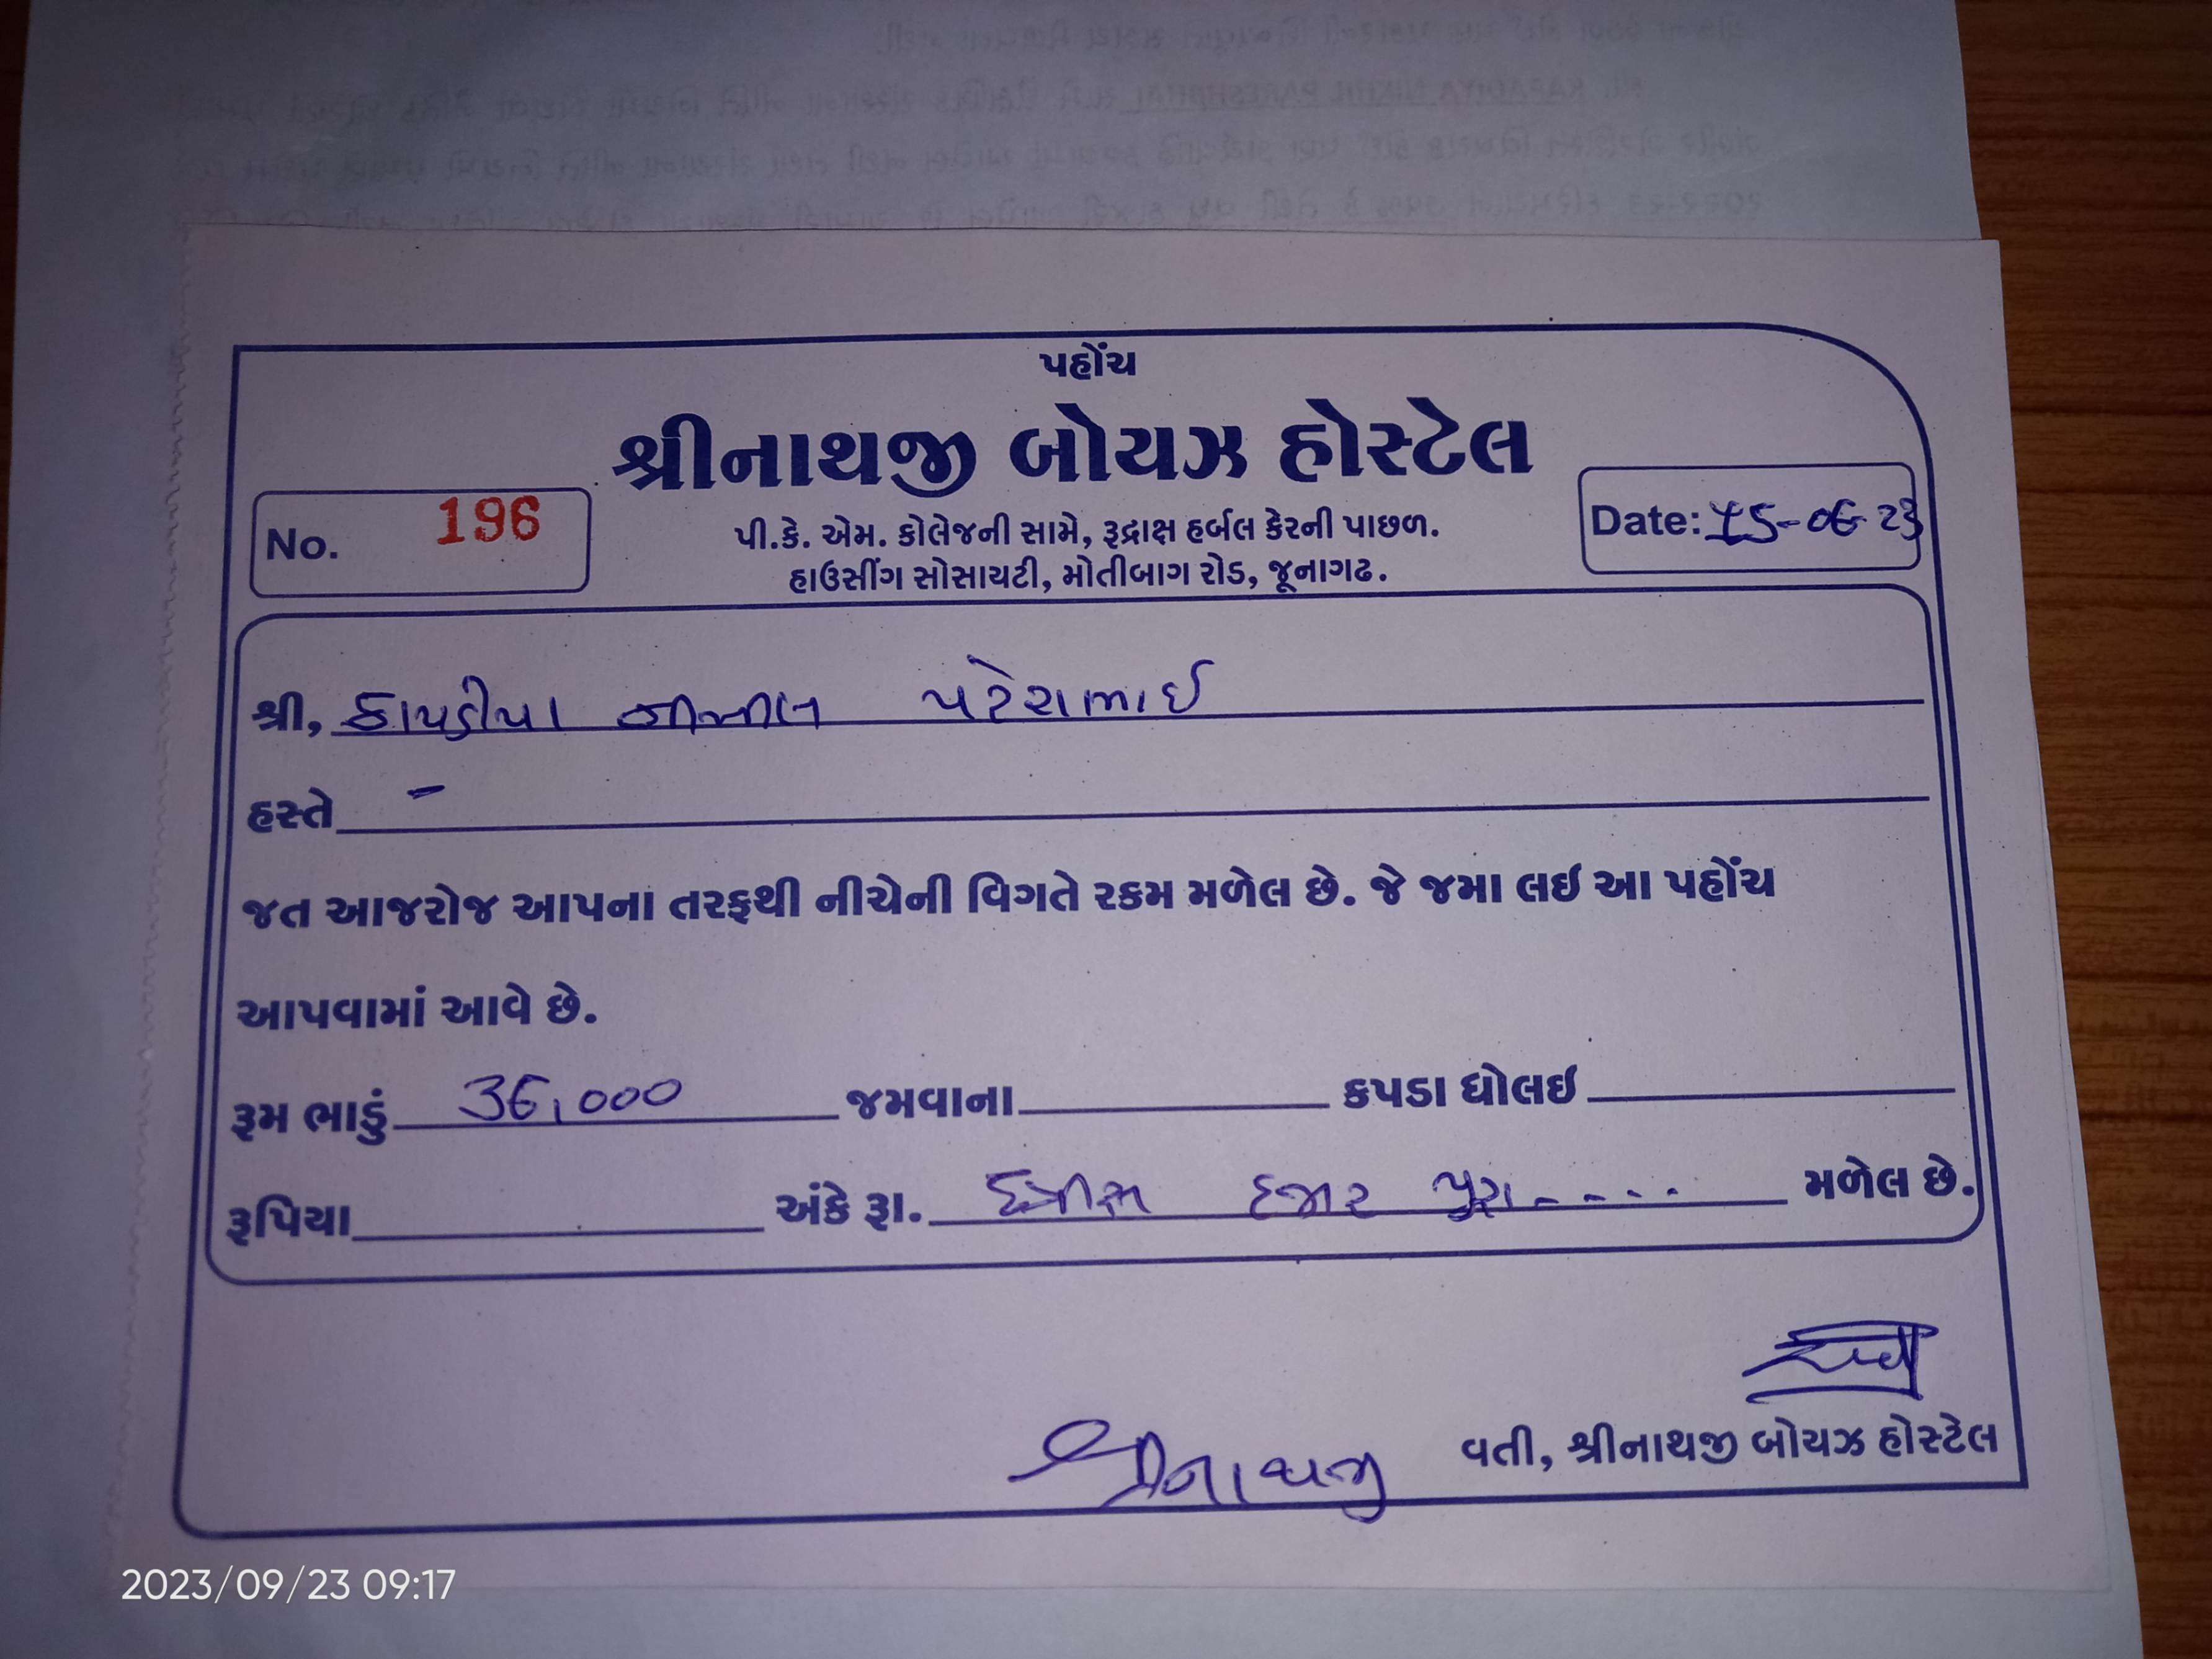 પહોંચ
શ્રીનાથજી બોયઝ હોસ્ટેલ
No. 196
પી.કે. એમ. કોલેજની સામે, રૂદ્રાક્ષ હર્બલ કેરની પાછળ.
હાઉસીંગ સોસાયટી, મોતીબાગ રોડ, જૂનાગઢ.
Date: 15-06-23
શ્રી, કાપડીયા પરેશભાઈ
હસ્તે -
જત આજરોજ આપના તરફથી નીચેની વિગતે રકમ મળેલ છે. જે જમા લઇ આ પહોંચ
આપવામાં આવે છે.
રૂમ ભાડું 36,000 જમવાના કપડા ધોલઇ
રૂપિયા અંકે રૂા. છત્રીસ હજાર પુરા----- મળેલ છે.
વતી, શ્રીનાથજી બોયઝ હોસ્ટેલ
શ્રીનાથજી
2023/09/23 09:17